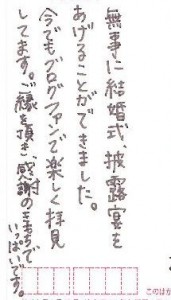 無事に結婚式、披露宴を
あげることができました。
今でもブログファンで楽しく拝見
してます。ご縁を頂き感謝の気持ちで
いっぱいです。
このはが